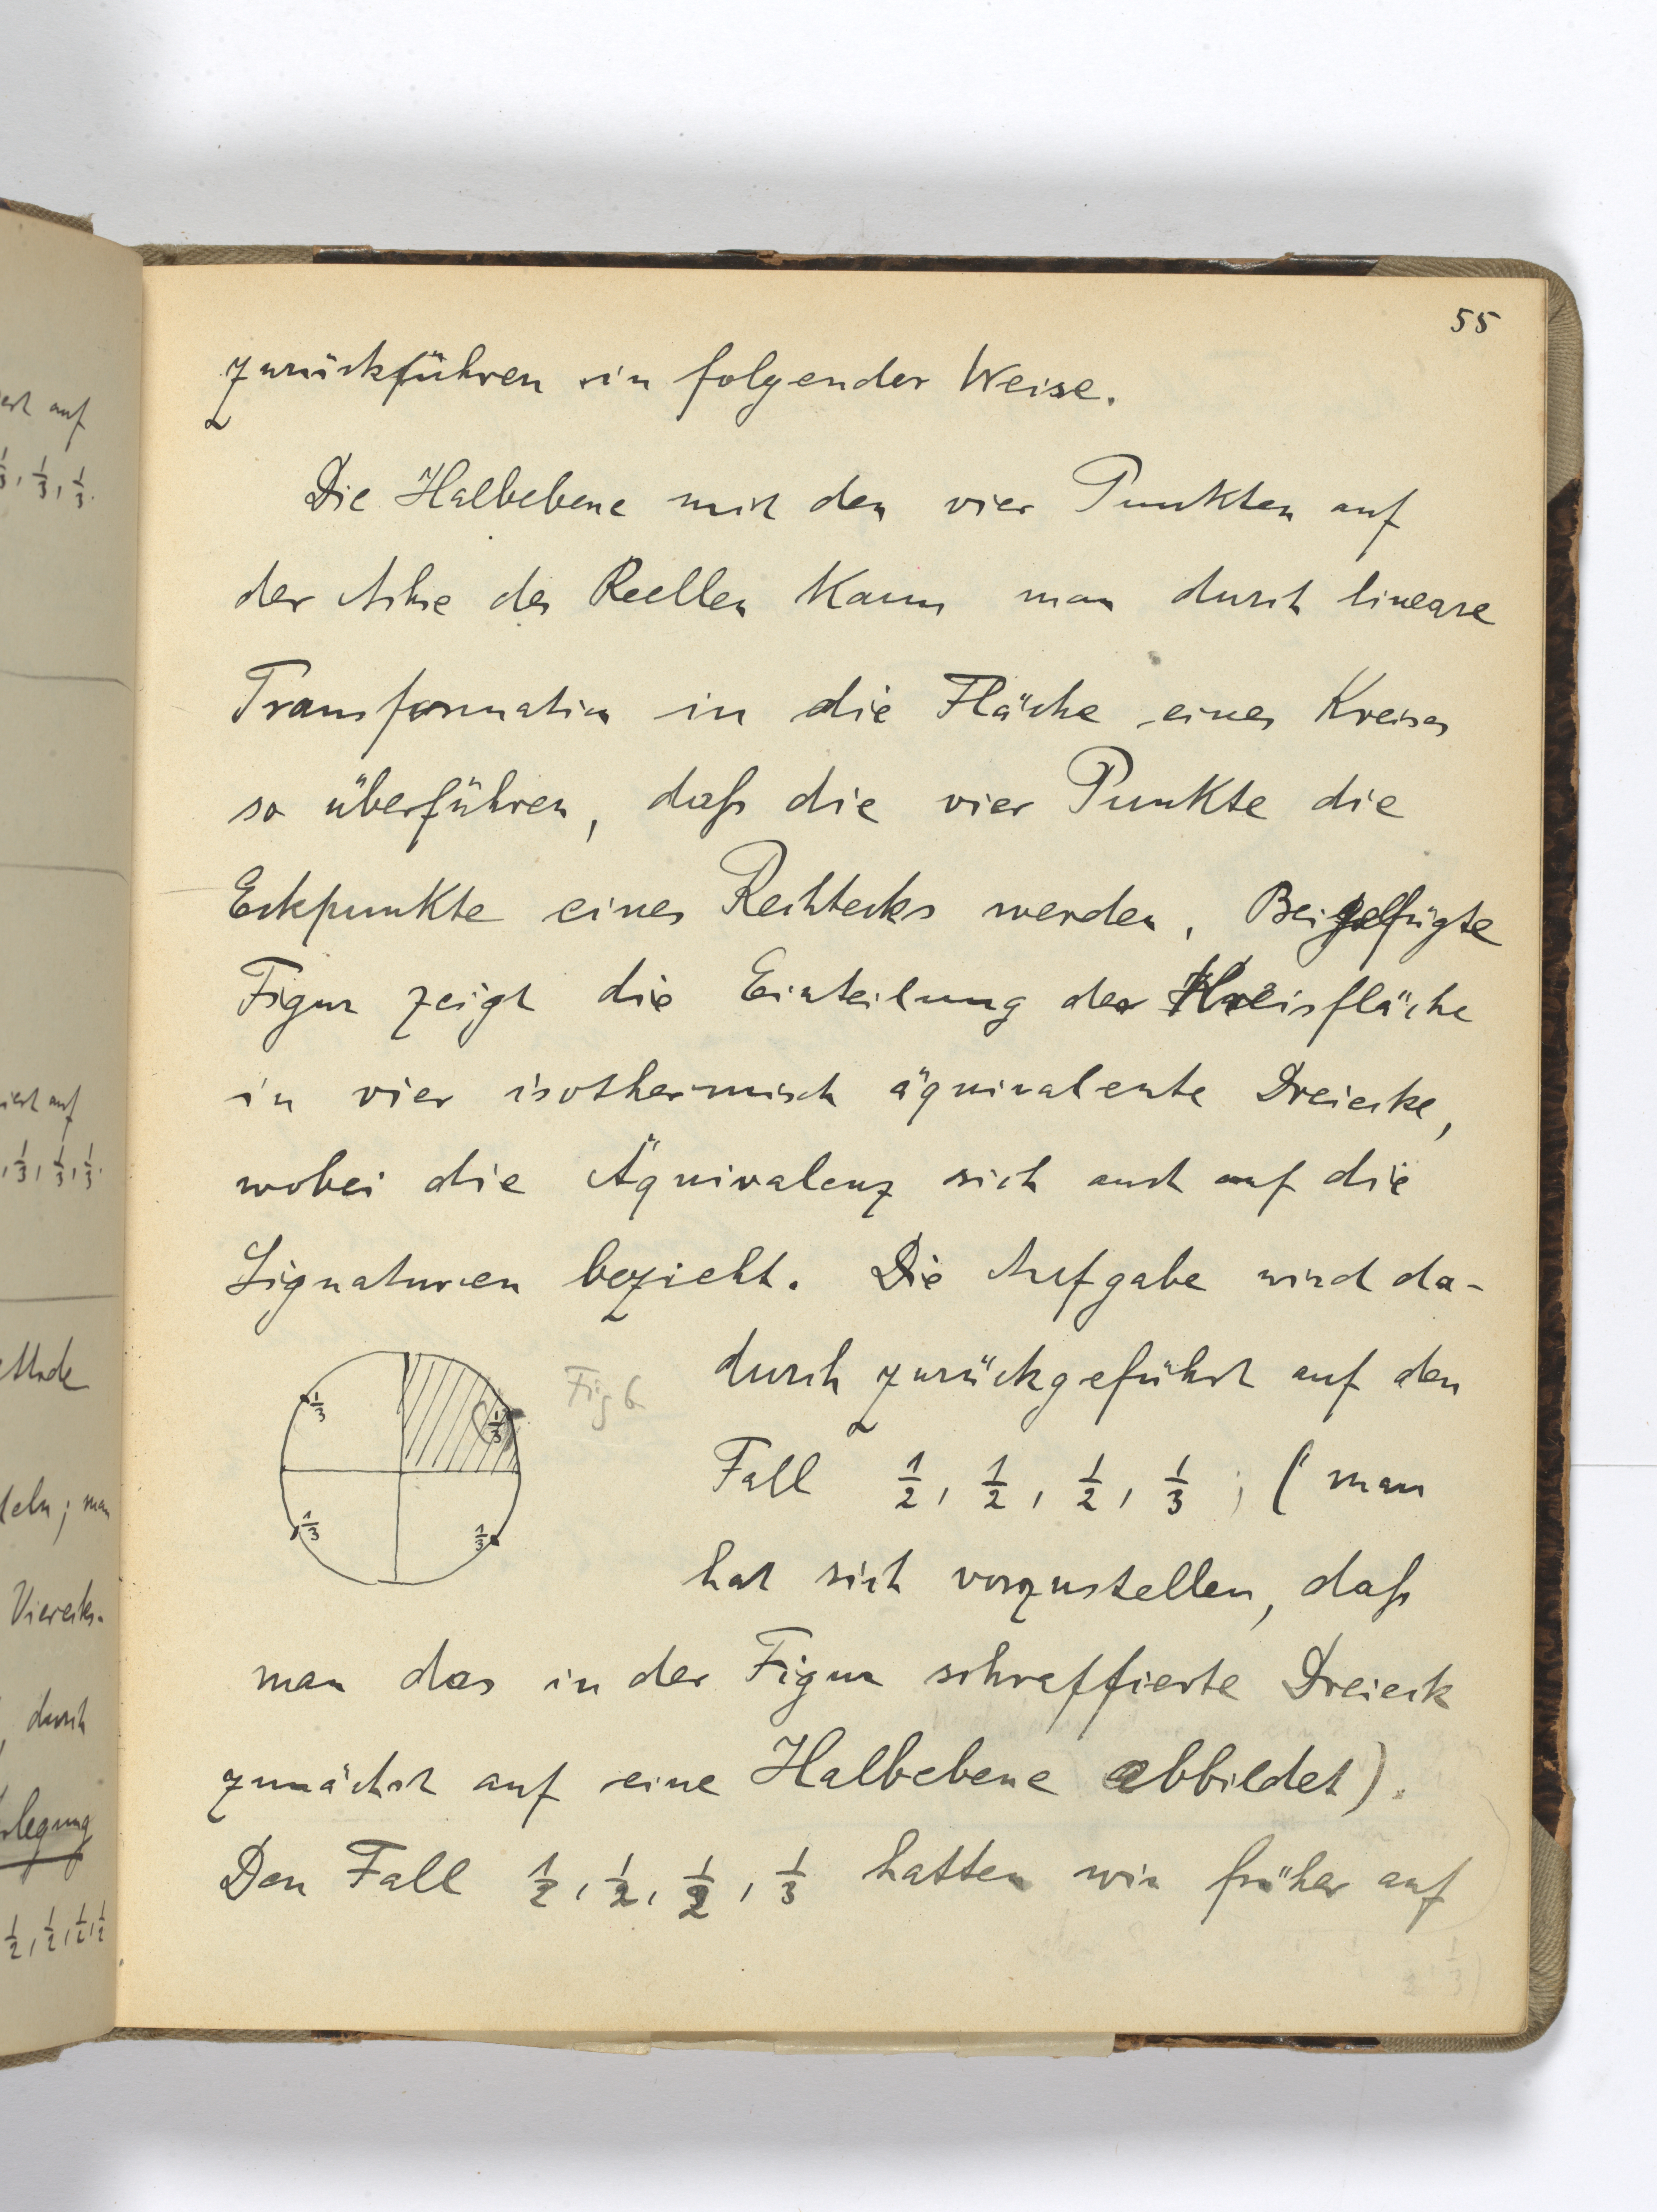 ert auf
55
zurückführen in folgender Weise.
1/3, 1/3, 1/3.
Die Halbebene mit den vier Punkten auf
der Achse des Reellen kann man durch lineare
Transformation in die Fläche eines Kreises
so überführen, daß die vier Punkte die
Eckpunkte eines Rechtecks werden. Beigefügte
Figur zeigt die Einteilung der Kreisfläche
in vier isothermisch äquivalente Dreiecke,
iert auf
, 1/3, 1/3, 1/3.
wobei die Äquivalenz sich auch auf die
Signaturen bezieht. Die Aufgabe wird da-
durch zurückgeführt auf den
Fig 6
1/3
1/3
1/3
1/3
Fall 1/2, 1/2, 1/2, 1/3; (man
hat sich vorzustellen, daß
man das in der Figur schraffierte Dreieck
zunächst auf eine Halbebene abbildet).
Den Fall 1/2, 1/2, 1/2, 1/3 hatten wir früher auf
deln; man
Vierecks-
durch
legung
1/2, 1/2, 1/2, 1/2